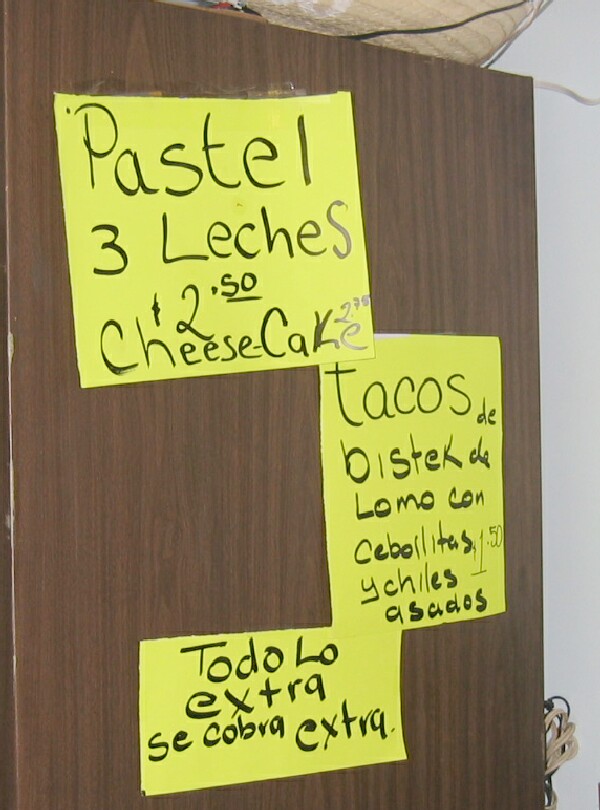 Pastel
3 Leches
$2.50
Cheese-Cake 2.75
tacos de
bistek de
Lomo con
Cebollitas, 1.50
y chiles
asados
Todo Lo
extra
se cobra extra.